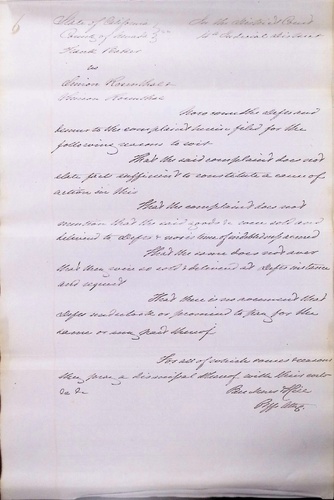 6
State of California
County of
In the District Court
Judicial District
Frank Baker
vs
Simon
Simon
Now come the defts and
demur to the complaint herein filed for the
following reasons to wit
That the said complaint does not
state facts sufficient to constitute a cause of
action in this
That the complaint does not
mention that the said goods &c were sold and
delivered to defts &
That the same does not aver
that they were so sold & delivered at defts instance
and request
That there is no averment that
defts undertook or promised to pay for the
same or any part thereof
For all of which causes
they pray a dismissal thereof with their costs
&c &c